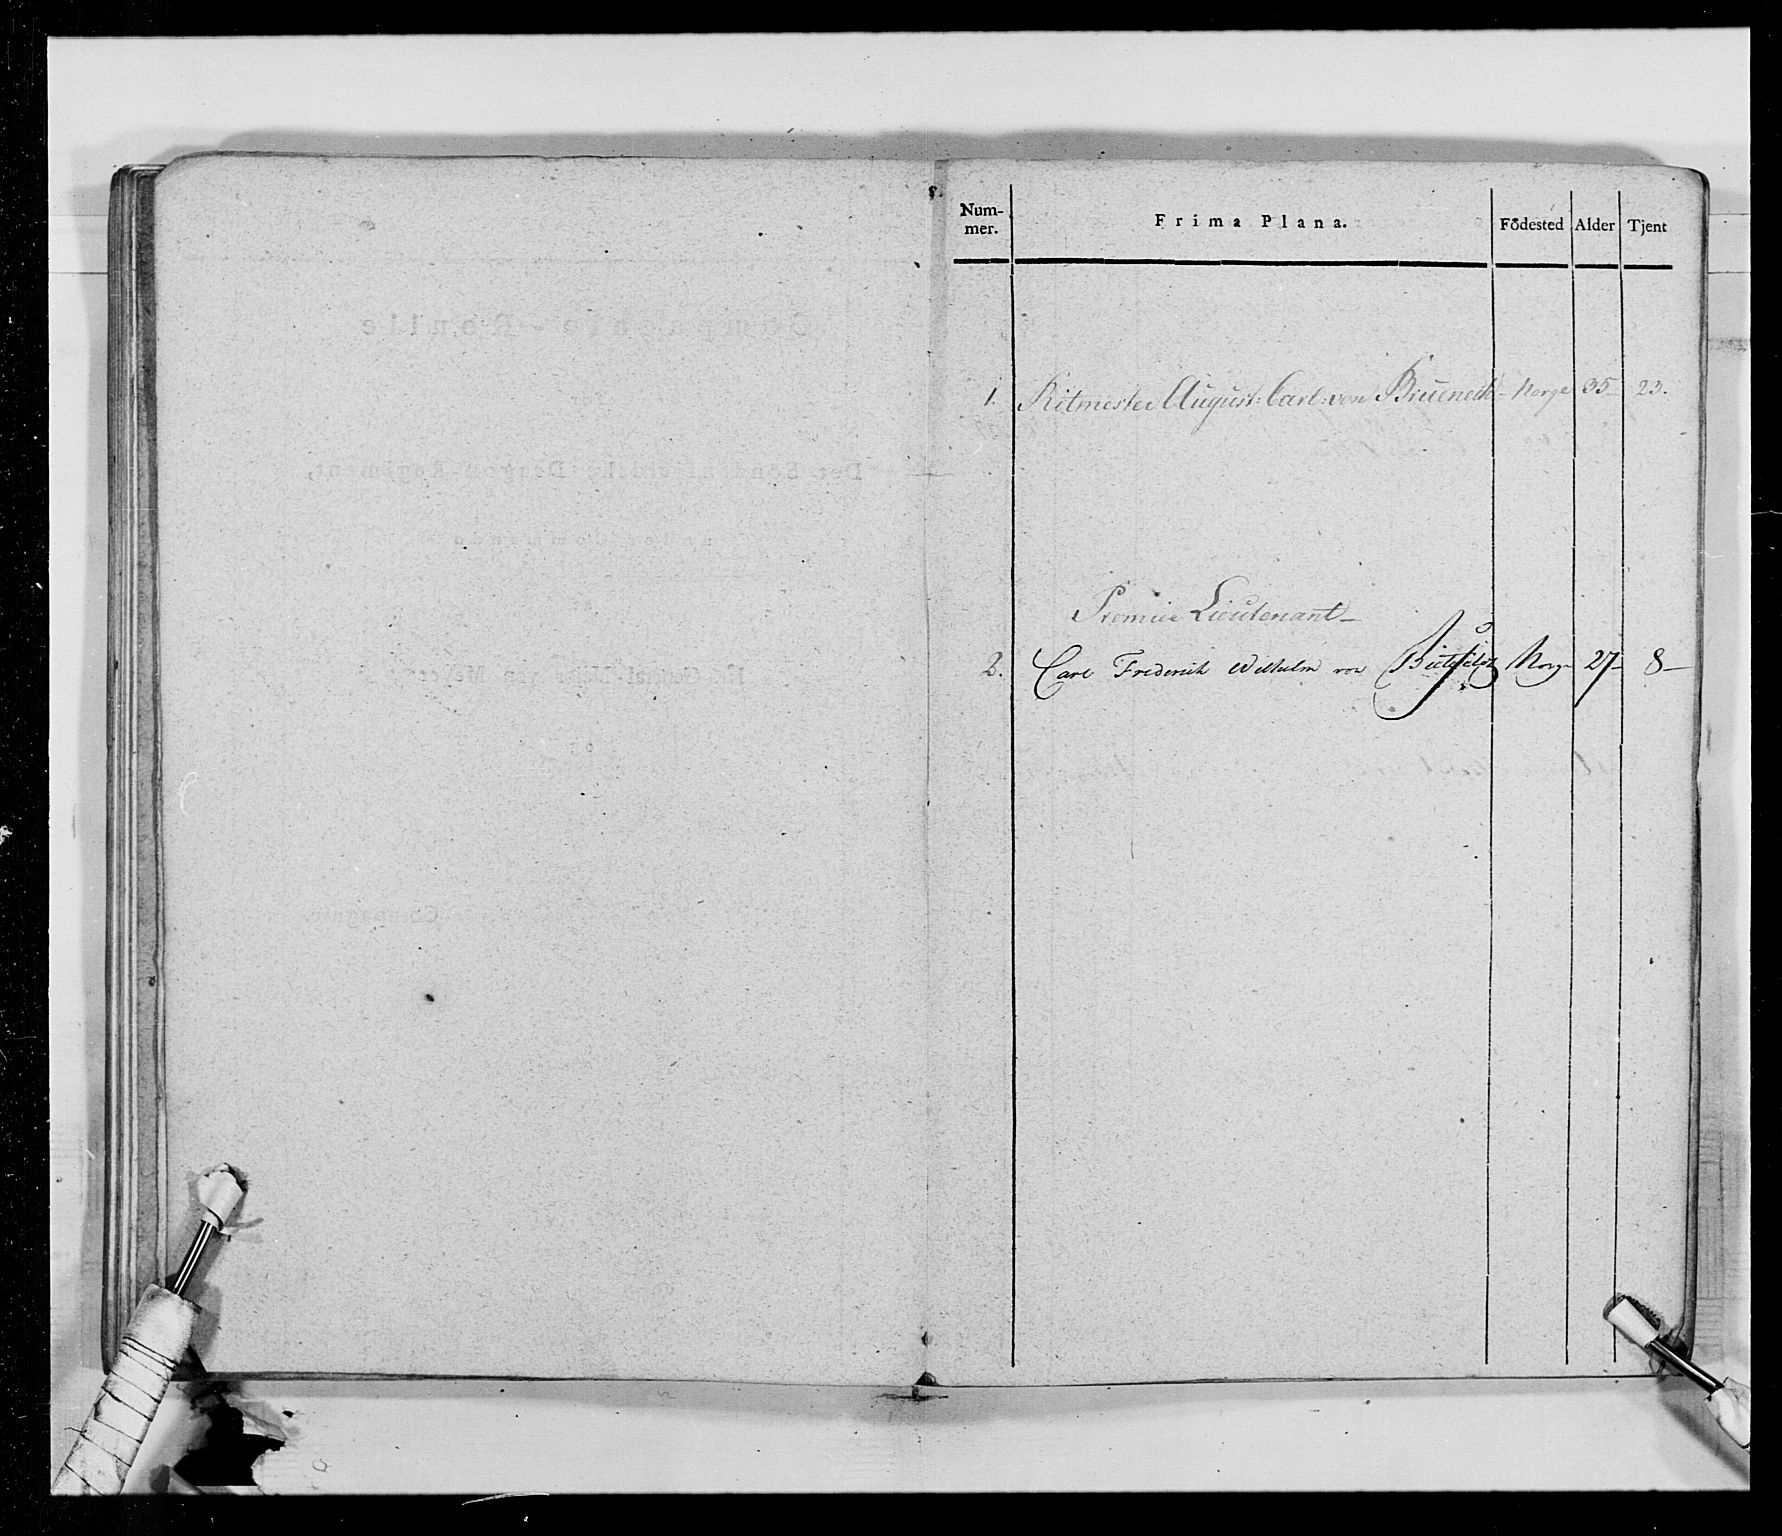 Num-
mer.
Frima Plana.
Födested
Alder
Tjent
1. Ritmester August: Carl: von Brüeneck - Norge 35- 23.
Premier Lieutenant-
2. Carl Frederich Wilhelm von Norge 27- 8-